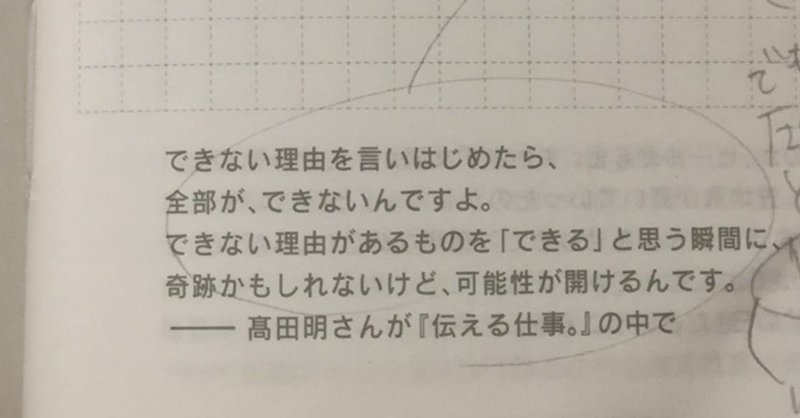 できない理由を言いはじめたら、
全部が、できないんですよ。
できない理由があるものを「できる」と思う瞬間に、
奇跡かもしれないけど、可能性が開けるんです。
―― 髙田明さんが『伝える仕事。』の中で